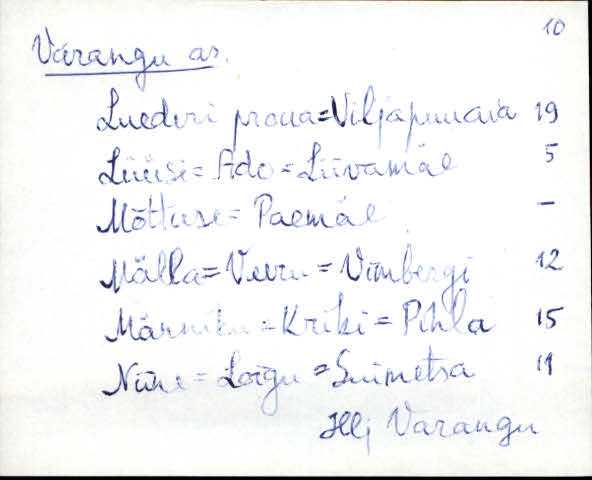 10
Varangu as.
Luederi proua=Viljapuuaia 19
Lüüsi=Ado=Liivamäe 5
Mõttuse=Paemäe –
Mälla=Veeru=Vimbergi 12
Männiku=Kriki=Pihla 15
Niine=Loigu=Suimetsa 11
Hlj Varangu